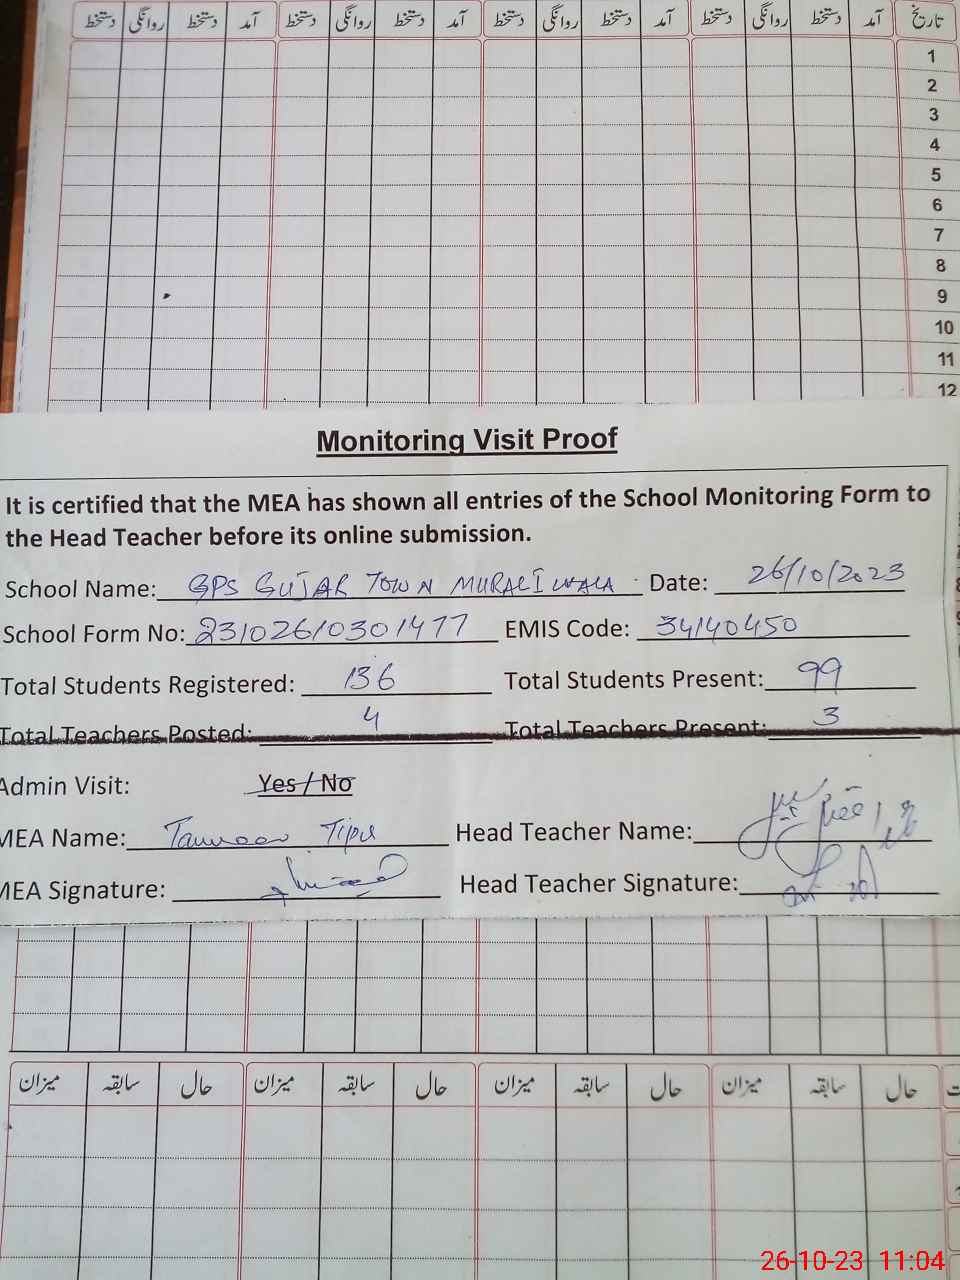 دستخط روانگی دستخط آمد دستخط روانگی دستخط آمد دستخط روانگی دستخط آمد دستخط روانگی دستخط آمد تاریخ
1
2
3
4
5
6
7
8
9
10
11
12
Monitoring Visit Proof
It is certified that the MEA has shown all entries of the School Monitoring Form to
the Head Teacher before its online submission.
School Name: GPS GUJAR TOWN MURALIWALA Date: 26/10/2023
School Form No: 23102610301477 EMIS Code: 34140450
Total Students Registered: 136 Total Students Present: 99
Total Teachers Posted: 4 Total Teachers Present: 3
Admin Visit: Yes / No
MEA Name: Tanveer Tipu Head Teacher Name:
MEA Signature: Head Teacher Signature:
میزان سابقہ حال میزان سابقہ حال میزان سابقہ حال میزان سابقہ حال
26-10-23 11:04